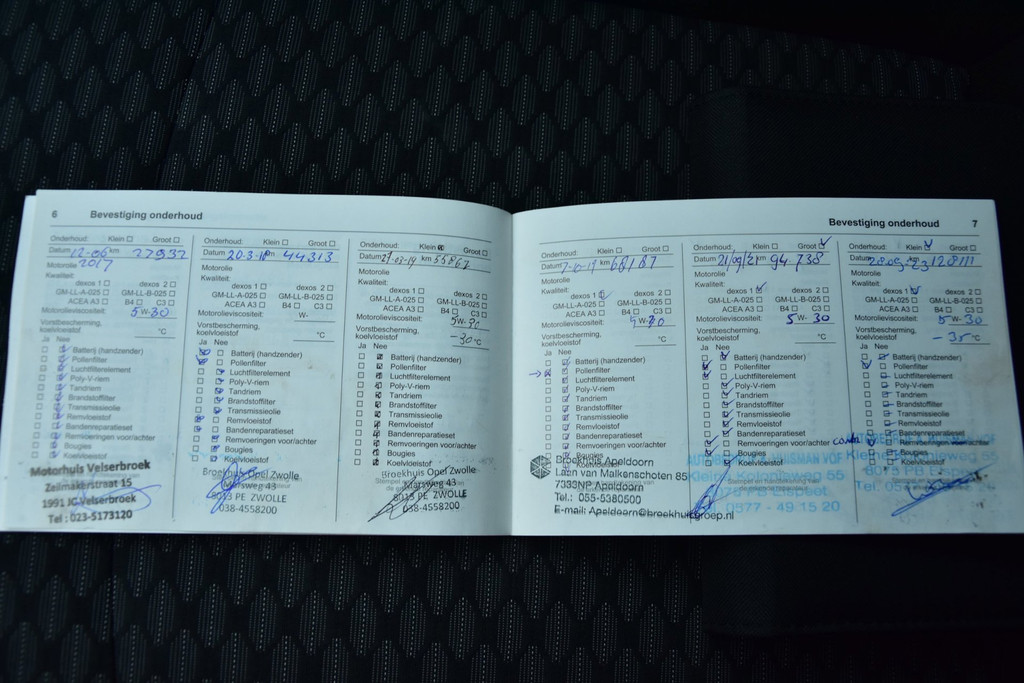 6 Bevestiging onderhoud
Onderhoud: Klein Groot
Datum 12-06 km 27932
Motorolie 2017
Kwaliteit:
dexos 1 dexos 2
GM-LL-A-025 GM-LL-B-025
ACEA A3 B4 C3
Motorolieviscositeit: 5 W-30
Vorstbescherming,
koelvloeistof °C
Ja Nee
Batterij (handzender)
Pollenfilter
Luchtfilterelement
Poly-V-riem
Tandriem
Brandstoffilter
Transmissieolie
Remvloeistof
Bandenreparatieset
Remvoeringen voor/achter
Bougies
Koelvloeistof
Motorhuis Velserbroek
Zeilmakerstraat 15
1991 JC Velserbroek
Tel : 023-5173120
Onderhoud: Klein Groot
Datum 20-3-18 km 44313
Motorolie
Kwaliteit:
dexos 1 dexos 2
GM-LL-A-025 GM-LL-B-025
ACEA A3 B4 C3
Motorolieviscositeit: W-
Vorstbescherming,
koelvloeistof °C
Ja Nee
Batterij (handzender)
Pollenfilter
Luchtfilterelement
Poly-V-riem
Tandriem
Brandstoffilter
Transmissieolie
Remvloeistof
Bandenreparatieset
Remvoeringen voor/achter
Bougies
Koelvloeistof
Broekhuis Opel Zwolle
Marsweg 43
8013 PE ZWOLLE
038-4558200
Onderhoud: Klein Groot
Datum 27-03-19 km 55867
Motorolie
Kwaliteit:
dexos 1 dexos 2
GM-LL-A-025 GM-LL-B-025
ACEA A3 B4 C3
Motorolieviscositeit: 5W-30
Vorstbescherming,
koelvloeistof -30 °C
Ja Nee
Batterij (handzender)
Pollenfilter
Luchtfilterelement
Poly-V-riem
Tandriem
Brandstoffilter
Transmissieolie
Remvloeistof
Bandenreparatieset
Remvoeringen voor/achter
Bougies
Koelvloeistof
Broekhuis Opel Zwolle
Marsweg 43
8013 PE ZWOLLE
038-4558200
Bevestiging onderhoud 7
Onderhoud: Klein Groot
Datum 7-10-19 km 68187
Motorolie
Kwaliteit:
dexos 1 dexos 2
GM-LL-A-025 GM-LL-B-025
ACEA A3 B4 C3
Motorolieviscositeit: 5 W-30
Vorstbescherming,
koelvloeistof °C
Ja Nee
Batterij (handzender)
Pollenfilter
Luchtfilterelement
Poly-V-riem
Tandriem
Brandstoffilter
Transmissieolie
Remvloeistof
Bandenreparatieset
Remvoeringen voor/achter
Bougies
Koelvloeistof
Broekhuis Apeldoorn
Laan van Malkenschoten 85
7333NP Apeldoorn
Tel.: 055-5380500
E-mail: Apeldoorn@broekhuisgroep.nl
Onderhoud: Klein Groot
Datum 21/09/21 km 94 738
Motorolie
Kwaliteit:
dexos 1 dexos 2
GM-LL-A-025 GM-LL-B-025
ACEA A3 B4 C3
Motorolieviscositeit: 5 W- 30
Vorstbescherming,
koelvloeistof °C
Ja Nee
Batterij (handzender)
Pollenfilter
Luchtfilterelement
Poly-V-riem
Tandriem
Brandstoffilter
Transmissieolie
Remvloeistof
Bandenreparatieset
Remvoeringen voor/achter
Bougies
Koelvloeistof
HUISMAN VOF
Kleine Kolonieweg 55
8075 PB Elspeet
0577 - 49 15 20
Onderhoud: Klein Groot
Datum 28-09-23 128111
Motorolie
Kwaliteit:
dexos 1 dexos 2
GM-LL-A-025 GM-LL-B-025
ACEA A3 B4 C3
Motorolieviscositeit: 5 W- 30
Vorstbescherming,
koelvloeistof - 35 °C
Ja Nee
Batterij (handzender)
Pollenfilter
Luchtfilterelement
Poly-V-riem
Tandriem
Brandstoffilter
Transmissieolie
Remvloeistof
Bandenreparatieset
Remvoeringen voor/achter
Bougies
Koelvloeistof